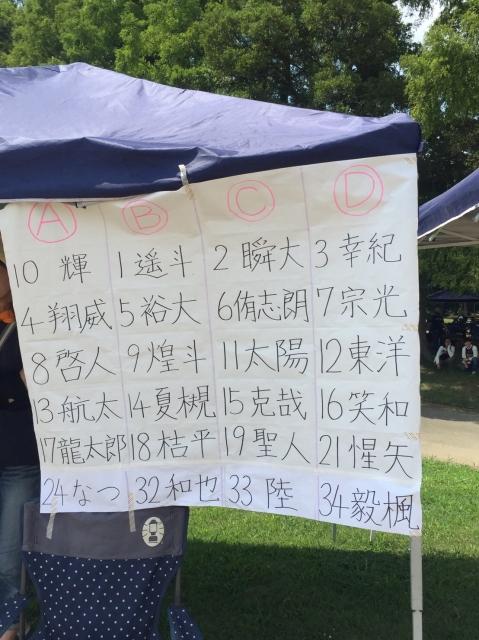 A B C D
10 輝 1 遥斗 2 瞬大 3 幸紀
4 翔威 5 裕大 6 侑志朗 7 宗光
8 啓人 9 煌斗 11 太陽 12 東洋
13 航太 14 夏槻 15 克哉 16 笑和
17 龍太郎 18 桔平 19 聖人 21 惺矢
24 なつ 32 和也 33 陸 34 毅楓